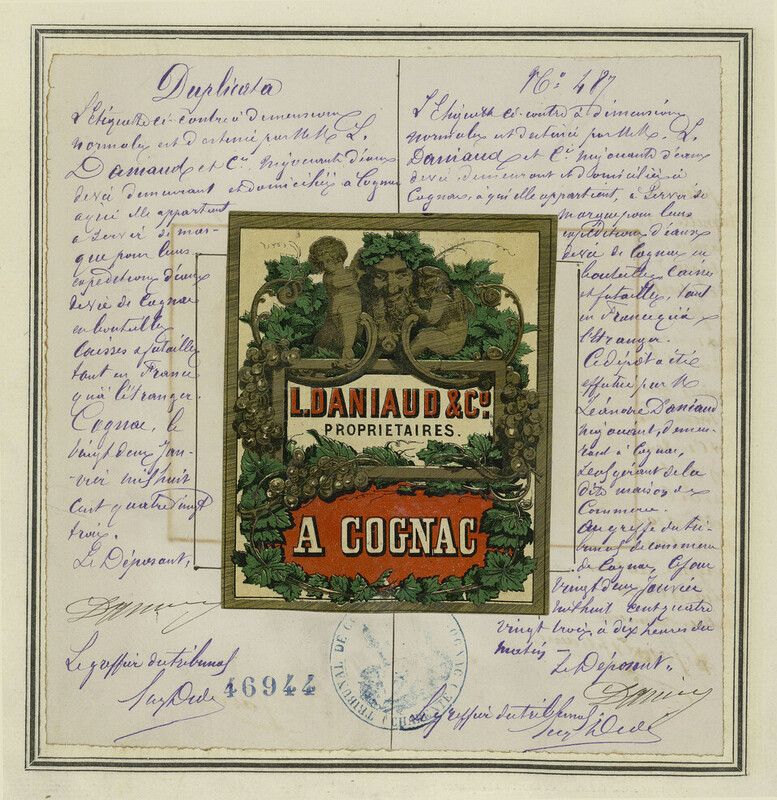 Duplicata
L'étiquette ci-contre à dimensions
normales est destinée par MM. L.
Daniaud et Cie. négociants d'eaux
de vie demeurant et domiciliés à Cognac
à qui elle appartient
à servir de mar-
que pour leurs
expéditions d'eaux
de vie de Cognac
en bouteilles
caisses & futailles
tant en France
qu'à l'étranger.
Cognac, le
vingt deux Jan-
vier mil huit
cent quatre vingt
trois.
Le Déposant,
Le greffier du tribunal
46944
No. 487
L'étiquette ci-contre à dimensions
normales est destinée par MM. L.
Daniaud et Cie négociants d'eaux
de vie demeurant et domiciliés à
Cognac, à qui elle appartient, à servir de
marque pour leurs
expéditions d'eaux
de vie de Cognac en
bouteilles caisses
et futailles, tant
en France qu'à
l'étranger.
Ce dépôt a été
effectué par M
Léandre Daniaud
négociant, demeu-
rant à Cognac,
seul gérant de la
dite maison de
Commerce.
Au greffe du tri-
bunal de commerce
de Cognac, ce jour
vingt deux Janvier
mil huit cent quatre
vingt trois à dix heures du
matin
Le Déposant.
Le greffier du tribunal
L. DANIAUD & Co.
PROPRIETAIRES.
A COGNAC
TRIBUNAL DE